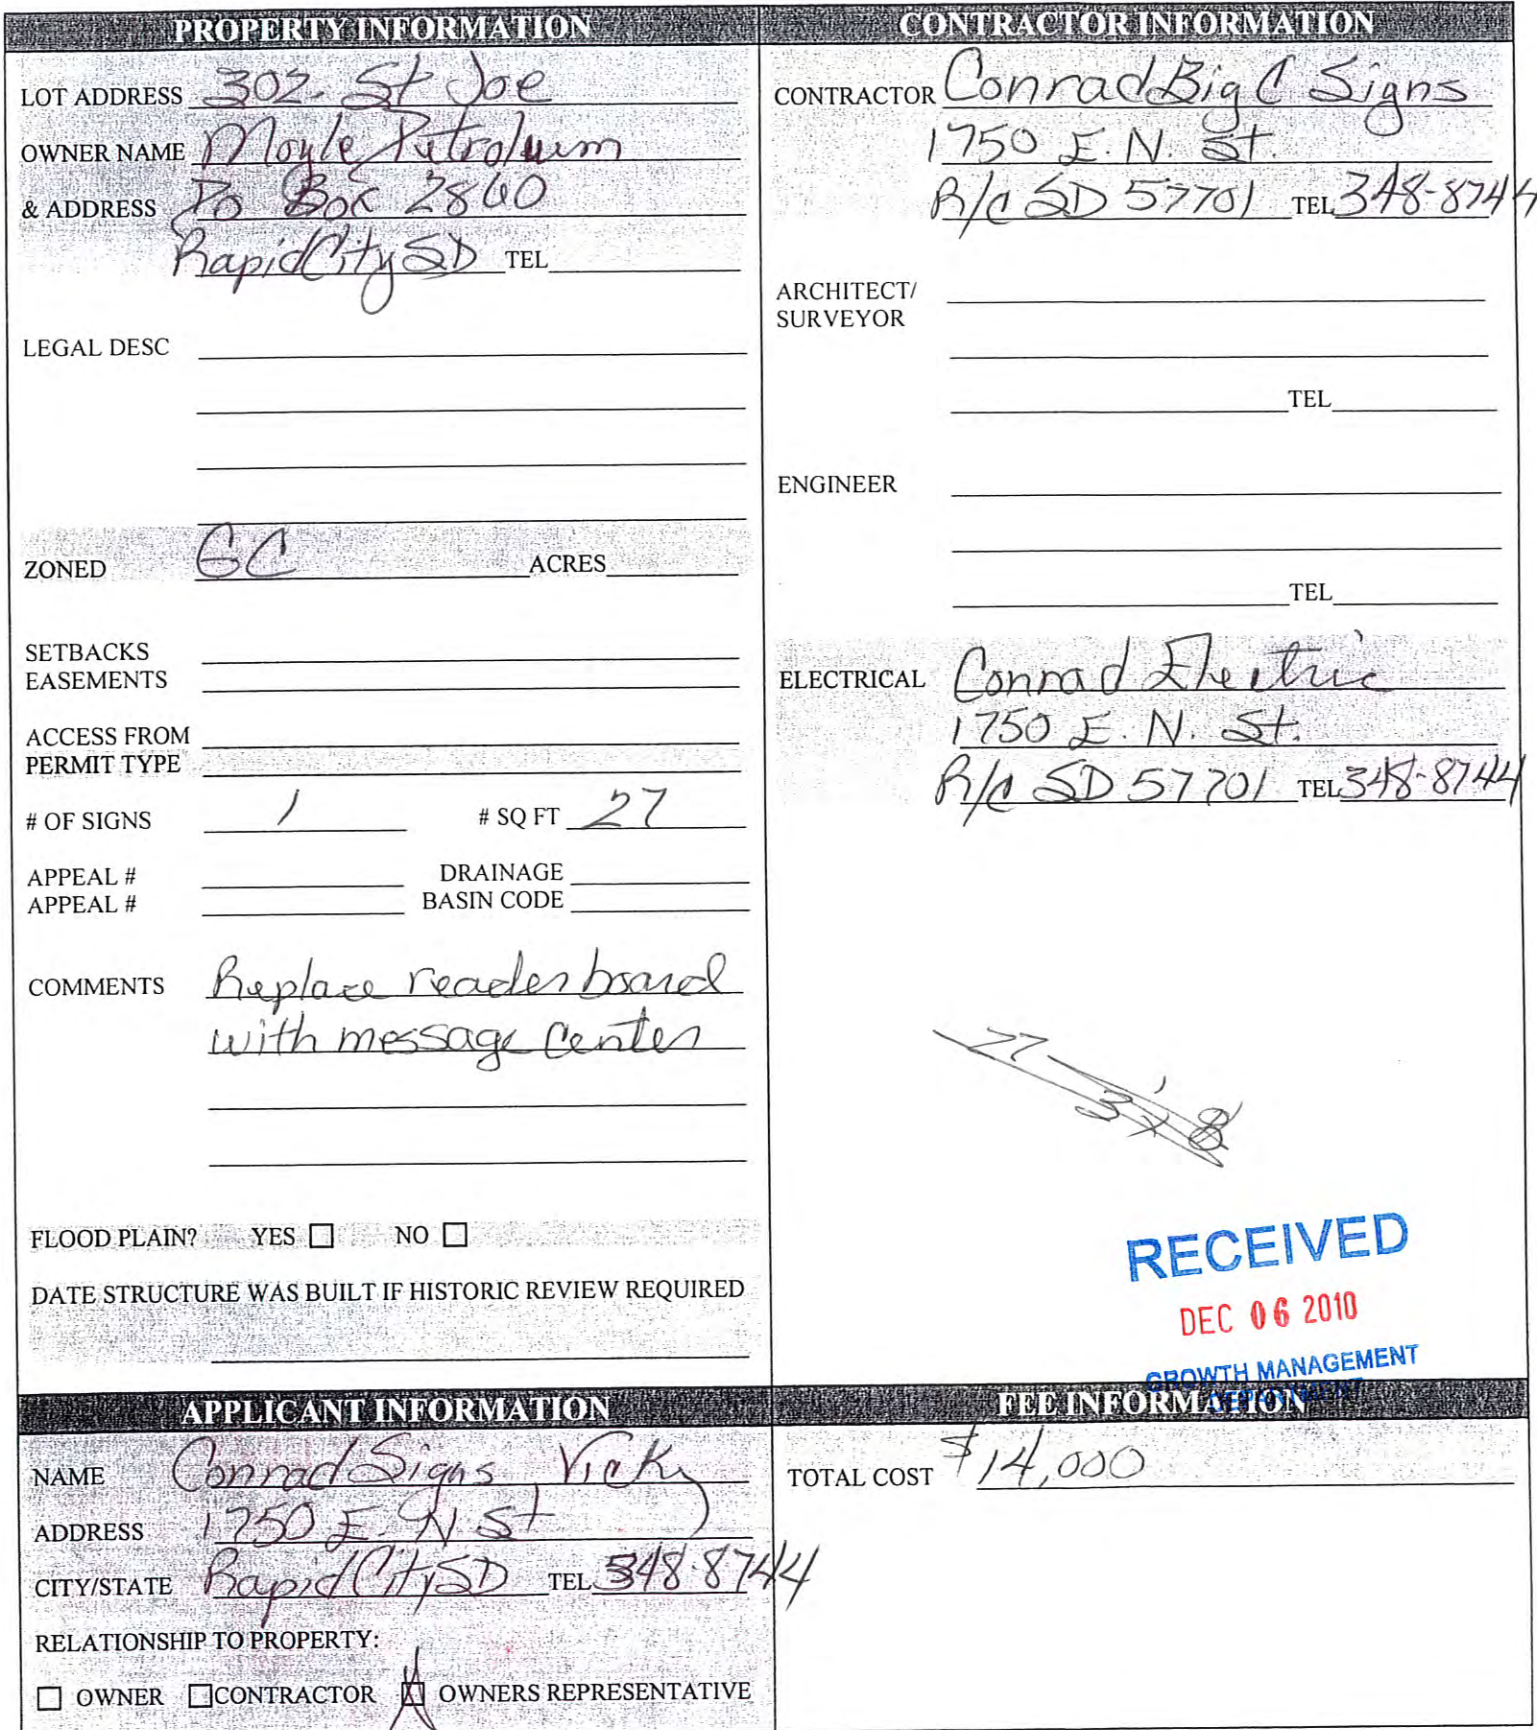 PROPERTY INFORMATION
LOT ADDRESS 302 St Joe
OWNER NAME Moyle Petroluem
& ADDRESS Po Box 2860
Rapid City SD TEL
LEGAL DESC
ZONED GC ACRES
SETBACKS
EASEMENTS
ACCESS FROM
PERMIT TYPE
# OF SIGNS 1 # SQ FT 27
APPEAL # DRAINAGE
APPEAL # BASIN CODE
COMMENTS Replace reader board
with message center
FLOOD PLAIN? YES NO
DATE STRUCTURE WAS BUILT IF HISTORIC REVIEW REQUIRED
CONTRACTOR INFORMATION
CONTRACTOR Conrad Big C Signs
1750 E. N. St.
R/C SD 57701 TEL 348-8744
ARCHITECT/
SURVEYOR
TEL
ENGINEER
TEL
ELECTRICAL Conrad Electric
1750 E. N. St.
R/C SD 57701 TEL 348-8744
27
3' x 8'
RECEIVED
DEC 06 2010
GROWTH MANAGEMENT
DEPARTMENT
APPLICANT INFORMATION
NAME Conrad Signs Vicky
ADDRESS 1750 E. N. St
CITY/STATE Rapid City SD TEL 348-8744
RELATIONSHIP TO PROPERTY:
OWNER CONTRACTOR OWNERS REPRESENTATIVE
FEE INFORMATION
TOTAL COST $14,000